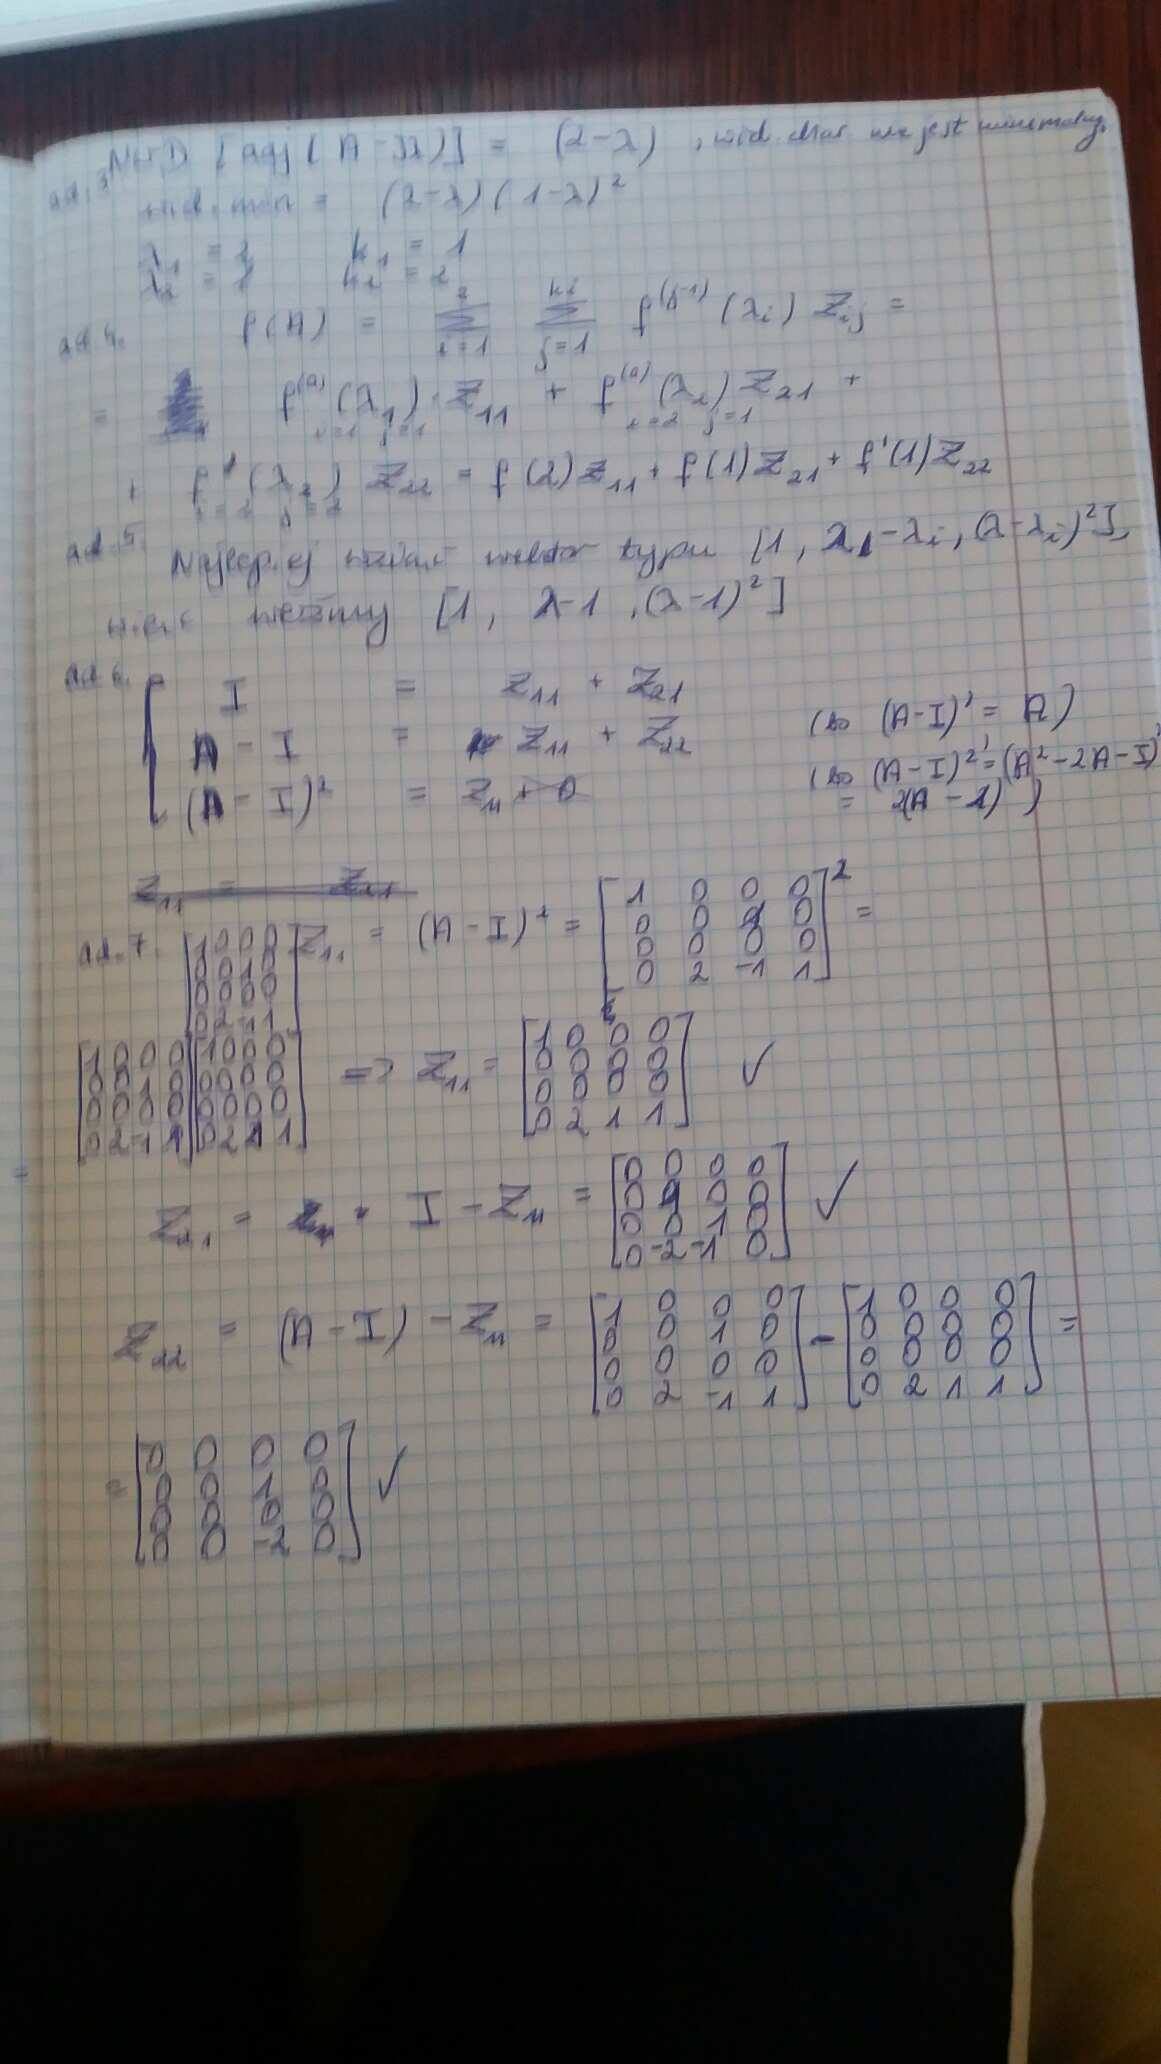 ad. 3 NWD [adj (A - Iλ)] = (2-λ) , wiel. char nie jest minimalny,
wiel. min = (2-λ)(1-λ)²
λ₁ = 2 k₁ = 1
λ₂ = 1 k₂ = 2
ad 4. f(A) = Σ_{i=1}^{2} Σ_{j=1}^{ki} f^{(j-1)}(λi) Zij =
= f^{(0)}(λ₁)·Z₁₁ + f^{(0)}(λ₂) Z₂₁ +
i=1 j=1 i=2 j=1
+ f¹(λ₂) Z₂₂ = f(2)Z₁₁ + f(1)Z₂₁ + f'(1)Z₂₂
i=2 j=2
ad. 5. Najlepiej wektor typu [1, λ-λi, (λ-λi)²],
więc weźmy [1, λ-1, (λ-1)²]
ad 6. I = Z₁₁ + Z₂₁
A - I = Z₁₁ + Z₂₂ (bo (A-I)' = A)
(A - I)² = Z₁₁ + 0 (bo (A-I)²' = (A²-2A-I)'
= 2(A-1) )
Z₁₁ = Z₂₁
ad. 7. Z₁₁ = (A-I)² = [1 0 0 0; 0 0 1 0; 0 0 0 0; 0 2 -1 1]² =
[1 0 0 0; 0 0 1 0; 0 0 0 0; 0 2 -1 1]
= [1 0 0 0; 0 0 1 0; 0 0 0 0; 0 2 -1 1] [1 0 0 0; 0 0 0 0; 0 0 0 0; 0 2 1 1] => Z₁₁ = [1 0 0 0; 0 0 0 0; 0 0 0 0; 0 2 1 1] ✓
Z₂₁ = I - Z₁₁ = [0 0 0 0; 0 1 0 0; 0 0 1 0; 0 -2 -1 0] ✓
Z₂₂ = (A - I) - Z₁₁ = [1 0 0 0; 0 0 1 0; 0 0 0 0; 0 2 -1 1] - [1 0 0 0; 0 0 0 0; 0 0 0 0; 0 2 1 1] =
= [0 0 0 0; 0 0 1 0; 0 0 0 0; 0 0 -2 0] ✓